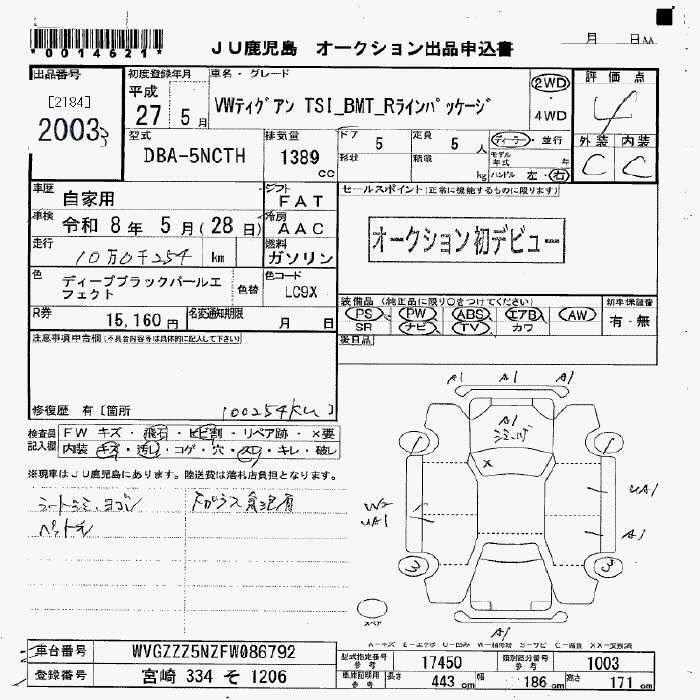 *0014621*
JU鹿児島 オークション出品申込書
月 日 AA
出品番号
[2184]
2003
初度登録年月
平成
27 5 月
車名・グレード
VWティグアン TSI_BMT_Rラインパッケージ
2WD
4WD
評価点
4
外装 内装
C C
型式
DBA-5NCTH
排気量
1389
cc
ドア
5
定員
5 人
形状
積載
kg
ディーラー・並行
モデル年式 年
ハンドル 左・右
車歴
自家用
シフト
FAT
車検
令和 8 年 5 月(28 日)
冷房
AAC
走行
10万0千254 km
燃料
ガソリン
色
ディープブラックパールエフェクト
色替
色コード
LC9X
R券
15,160 円
名変通知期限
月 日
セールスポイント(正常に機能するものに限ります)
オークション初デビュー
装備品(純正品に限り○をつけてください)
PS PW ABS エアB AW
SR ナビ TV カワ
新車保証書
有・無
後日品
注意事項申告欄(不具合内容等は具体的に記入して下さい)
修復歴 有[箇所
100254KM]
検査員記入欄
FW キズ・飛石・ヒビ割・リペア跡・×要
内装 キズ・汚れ・コゲ・穴・スレ・キレ・破レ
※現車はJU鹿児島にあります。陸送費は落札店負担となります。
シートシミ、ヨゴレ
A1 A1 A1
A1
×
1 1
W2
UA1
UA1
A1
3 3
A1
スペア
車台番号
WVGZZZ5NZFW086792
登録番号
宮崎 334 そ 1206
型式指定番号
参考
17450
類別区分番号
参考
1003
車庫証明用
参考
長さ
443 cm
幅
186 cm
高さ
171 cm